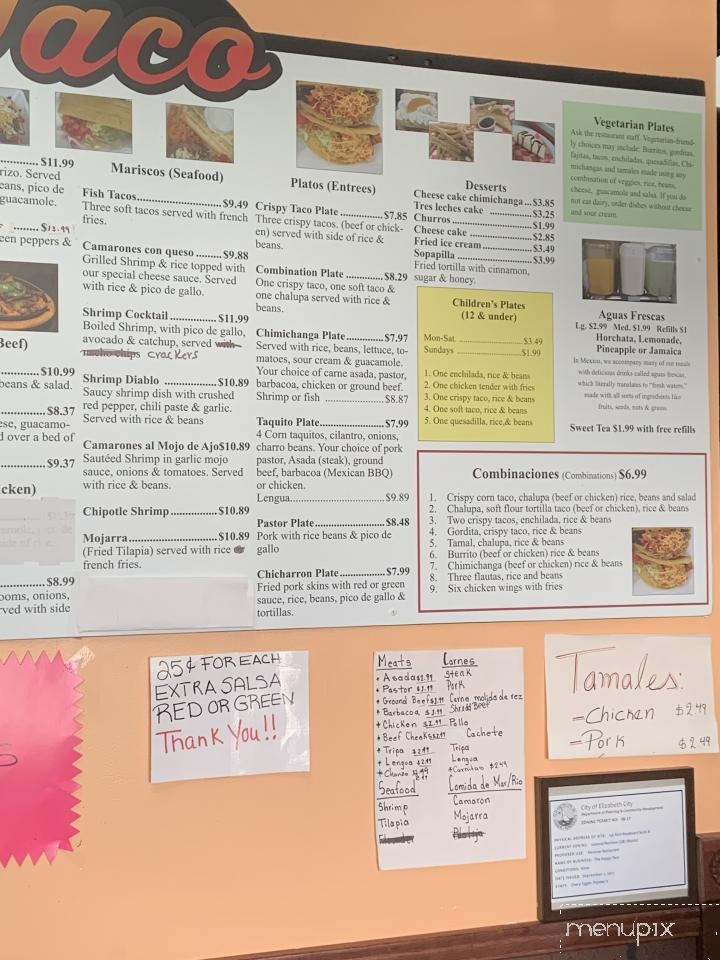 Taco
$11.99
rizo. Served
eans, pico de
guacamole.
$13.99
een peppers &
Beef)
$10.99
beans & salad.
$8.37
ese, guacamo-
d over a bed of
$9.37
icken)
$8.99
ooms, onions,
rved with side
Mariscos (Seafood)
Fish Tacos $9.49
Three soft tacos served with french
fries.
Camarones con queso $9.88
Grilled Shrimp & rice topped with
our special cheese sauce. Served
with rice & pico de gallo.
Shrimp Cocktail $11.99
Boiled Shrimp, with pico de gallo,
avocado & catchup, served with
nacho chips crackers
Shrimp Diablo $10.89
Saucy shrimp dish with crushed
red pepper, chili paste & garlic.
Served with rice & beans
Camarones al Mojo de Ajo $10.89
Sautéed Shrimp in garlic mojo
sauce, onions & tomatoes. Served
with rice & beans.
Chipotle Shrimp $10.89
Mojarra $10.89
(Fried Tilapia) served with rice
french fries.
Platos (Entrees)
Crispy Taco Plate $7.85
Three crispy tacos. (beef or chick-
en) served with side of rice &
beans.
Combination Plate $8.29
One crispy taco, one soft taco &
one chalupa served with rice &
beans.
Chimichanga Plate $7.97
Served with rice, beans, lettuce, to-
matoes, sour cream & guacamole.
Your choice of carne asada, pastor,
barbacoa, chicken or ground beef.
Shrimp or fish $8.87
Taquito Plate $7.99
4 Corn taquitos, cilantro, onions,
charro beans. Your choice of pork
pastor, Asada (steak), ground
beef, barbacoa (Mexican BBQ)
or chicken.
Lengua $9.89
Pastor Plate $8.48
Pork with rice beans & pico de
gallo
Chicharron Plate $7.99
Fried pork skins with red or green
sauce, rice, beans, pico de gallo &
tortillas.
Desserts
Cheese cake chimichanga $3.85
Tres leches cake $3.25
Churros $1.99
Cheese cake $2.85
Fried ice cream $3.49
Sopapilla $3.99
Fried tortilla with cinnamon,
sugar & honey.
Children's Plates
(12 & under)
Mon-Sat. $3.49
Sundays $1.99
1. One enchilada, rice & beans
2. One chicken tender with fries
3. One crispy taco, rice & beans
4. One soft taco, rice & beans
5. One quesadilla, rice,& beans
Vegetarian Plates
Ask the restaurant staff. Vegetarian-friend-
ly choices may include: Burritos, gorditas,
fajitas, tacos, enchiladas, quesadillas, Chi-
michangas and tamales made using any
combination of veggies, rice, beans,
cheese, guacamole and salsa. If you do
not eat dairy, order dishes without cheese
and sour cream.
Aguas Frescas
Lg. $2.99 Med. $1.99 Refills $1
Horchata, Lemonade,
Pineapple or Jamaica
In Mexico, we accompany many of our meals
with delicious drinks called aguas frescas,
which literally translates to "fresh waters,"
made with all sorts of ingredients like
fruits, seeds, nuts & grains.
Sweet Tea $1.99 with free refills
Combinaciones (Combinations) $6.99
1. Crispy corn taco, chalupa (beef or chicken) rice, beans and salad
2. Chalupa, soft flour tortilla taco (beef or chicken), rice & beans
3. Two crispy tacos, enchilada, rice & beans
4. Gordita, crispy taco, rice & beans
5. Tamal, chalupa, rice & beans
6. Burrito (beef or chicken) rice & beans
7. Chimichanga (beef or chicken) rice & beans
8. Three flautas, rice and beans
9. Six chicken wings with fries
S
25¢ FOR EACH
EXTRA SALSA
RED OR GREEN
Thank You!!
Meats Carnes
• Asada $1.99 Steak
• Pastor $1.99 Pork
• Ground Beef $1.99 Carne molida de rez
• Barbacoa $1.99 Shredd Beef
• Chicken $1.99 Pollo
• Beef Cheeks $2.49 Cachete
• Tripa $2.49 Tripa
• Lengua $2.49 Lengua
• Chorizo • Carnitas $2.49
Seafood Comida de Mar/Rio
Shrimp Camaron
Tilapia Mojarra
Tamales:
-Chicken $2.49
-Pork $2.49
City of Elizabeth City
Department of Planning & Community Development
menupix